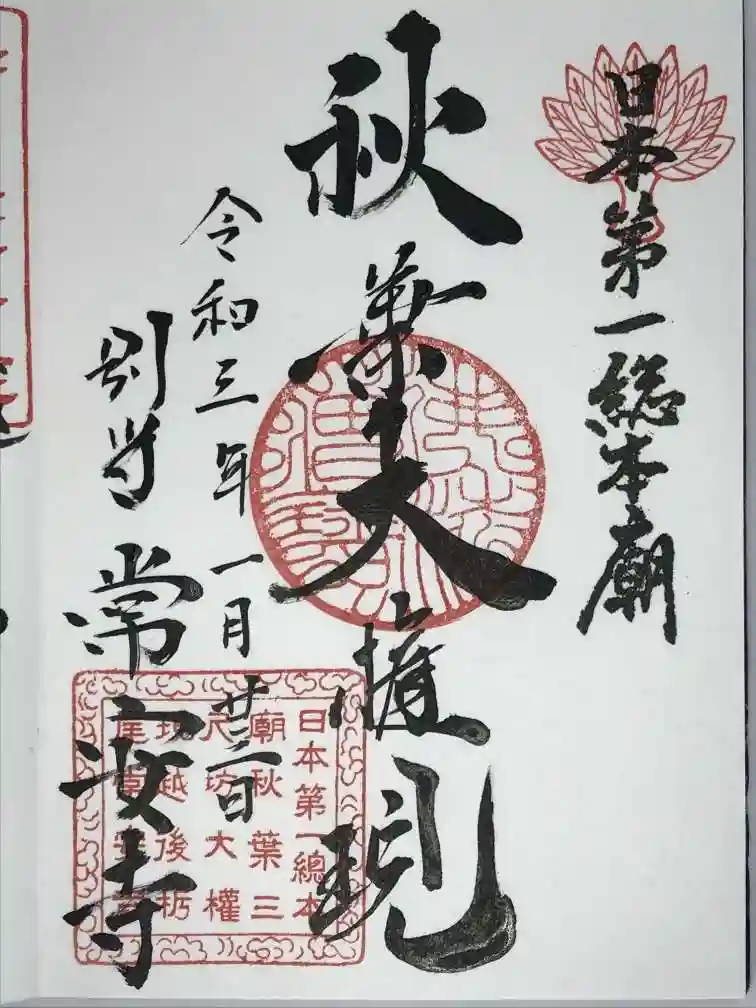 日本第一総本廟
秋葉大権現
令和三年一月廿二日
別当 常安寺
日本第一總本
廟秋葉三
尺坊大權
現越後栃
尾常安寺